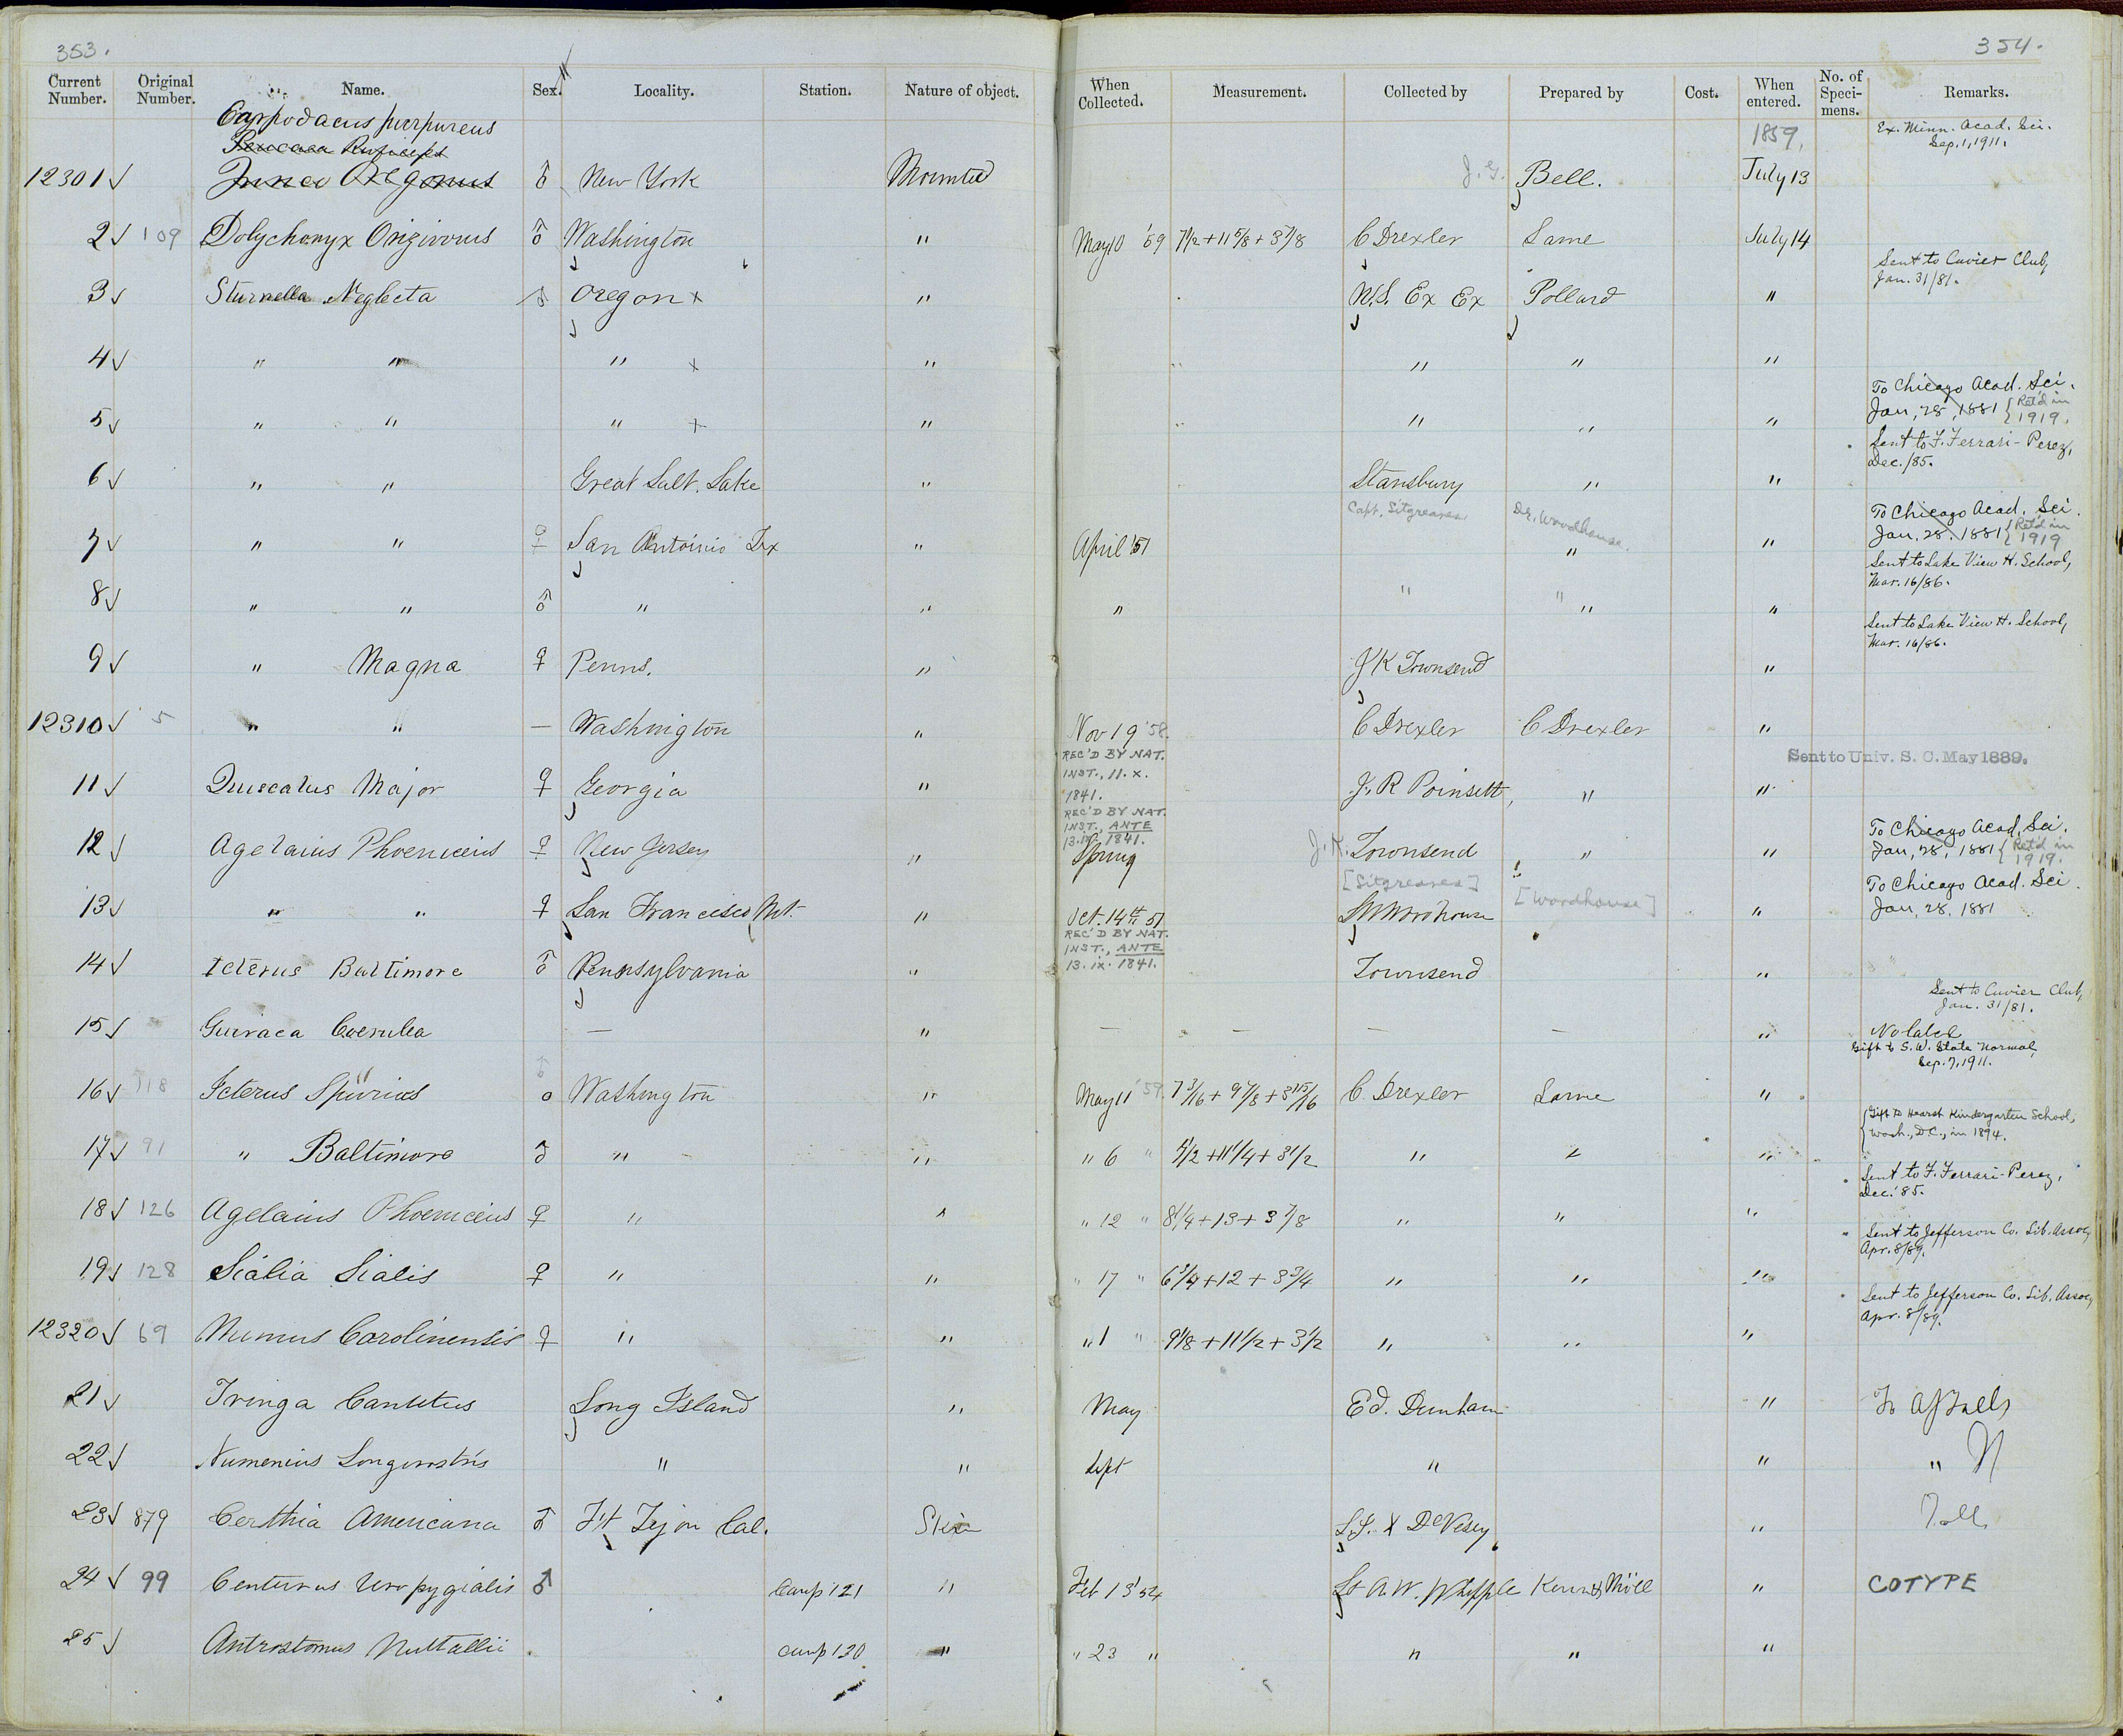 353.
354.
Current Number. Original Number. Name. Sex. Locality. Station. Nature of object. When Collected. Measurement. Collected by Prepared by Cost. When entered. No. of Specimens. Remarks.
Carpodacus purpureus
1859.
Ex. Minn. Acad. Sci.
Sep. 1, 1911.
Peucaea Ruficeps
12301 ✓ Junco Oregonus ♂ New York Mounted J. G. Bell. July 13
2 ✓ 109 Dolychonyx Orizivorus ♂ Washington " May 10 '59 7 1/2 + 11 5/8 + 3 7/8 C Drexler Same July 14
Sent to Cuvier Club,
Jan. 31/81.
3 ✓ Sturnella Neglecta ♂ Oregon x " U.S. Ex Ex Pollard "
4 ✓ " " " x " " " "
To Chicago Acad. Sci.
Jan, 28, 1881 { Ret'd in 1919.
5 ✓ " " " x " " " "
Sent to F. Ferrari-Perez,
Dec. /85.
6 ✓ " " Great Salt. Lake " Stansbury " "
Capt. Sitgreaves Dr. Woodhouse.
To Chicago Acad. Sci.
Jan, 28. 1881 { Ret'd in 1919
7 ✓ " " ♀ San Antoinio Tex " April '51 " "
Sent to Lake View H. School,
Mar. 16/86.
8 ✓ " " ♂ " " " " " " "
Sent to Lake View H. School,
Mar. 16/86.
9 ✓ " Magna ♀ Penns. " J K Townsend "
12310 ✓ 5 " " — Washington " Nov 19 '58. C Drexler C Drexler "
REC'D BY NAT.
INST., 11. X.
1841.
Sent to Univ. S. C. May 1889.
11 ✓ Quiscalus Major ♀ Georgia " J. R Poinsett, " "
REC'D BY NAT.
INST., ANTE
13. ix. 1841.
To Chicago Acad. Sci.
Jan, 28, 1881 { Ret'd in 1919.
12 ✓ Agelaius Phoeniceus ♀ New Jersey " Spring J. K. Townsend " "
[Sitgreaves] [Woodhouse]
To Chicago Acad. Sci.
Jan, 28. 1881
13 ✓ " " ♀ San Francisco Mt. " Oct. 14th 51 "
REC'D BY NAT.
INST., ANTE
13. ix. 1841.
14 ✓ Icterus Baltimore ♂ Pennsylvania " Townsend "
Sent to Cuvier Club,
Jan. 31/81.
15 ✓ Guiraca Coerulea — " — — — — " No label
Gift to S. W. State Normal,
Sep. 7, 1911.
16 ✓ 118 Icterus Spurius ♂ Washington " May 11 '59. 7 3/16 + 9 7/8 + 3 15/16 C Drexler Same "
{ Gift to Hearst Kindergarten School,
Wash., D.C., in 1894.
17 ✓ 91 " Baltimore ♂ " " " 6 " 7 1/2 + 11 1/4 + 3 1/2 " " "
Sent to F. Ferrari-Perez,
Dec. '85.
18 ✓ 126 Agelaius Phoeniceus ♀ " " " 12 " 8 1/4 + 13 + 3 7/8 " " "
Sent to Jefferson Co. Lib. Assoc,
Apr. 8/89.
19 ✓ 128 Sialia Sialis ♀ " " " 17 " 6 3/4 + 12 + 3 3/4 " " "
Sent to Jefferson Co. Lib. Assoc,
Apr. 8/89.
12320 ✓ 69 Mimus Carolinensis ♀ " " " 1 " 9 1/8 + 11 1/2 + 3 1/2 " " "
21 ✓ Tringa Canutus Long Island " May Ed. Dunham "
22 ✓ Numenius Longirostris " " Sept " " "
23 ✓ 879 Certhia Americana ♂ Ft Tejon Cal. Skin X DeVesey "
24 ✓ 99 Centurus Uropygialis ♂ Camp 121 " Feb 13 '54 Lt A. W. Whipple Kenn & Möll " COTYPE
25 ✓ Antrostomus Nuttallii camp 130 " " 23 " " " "